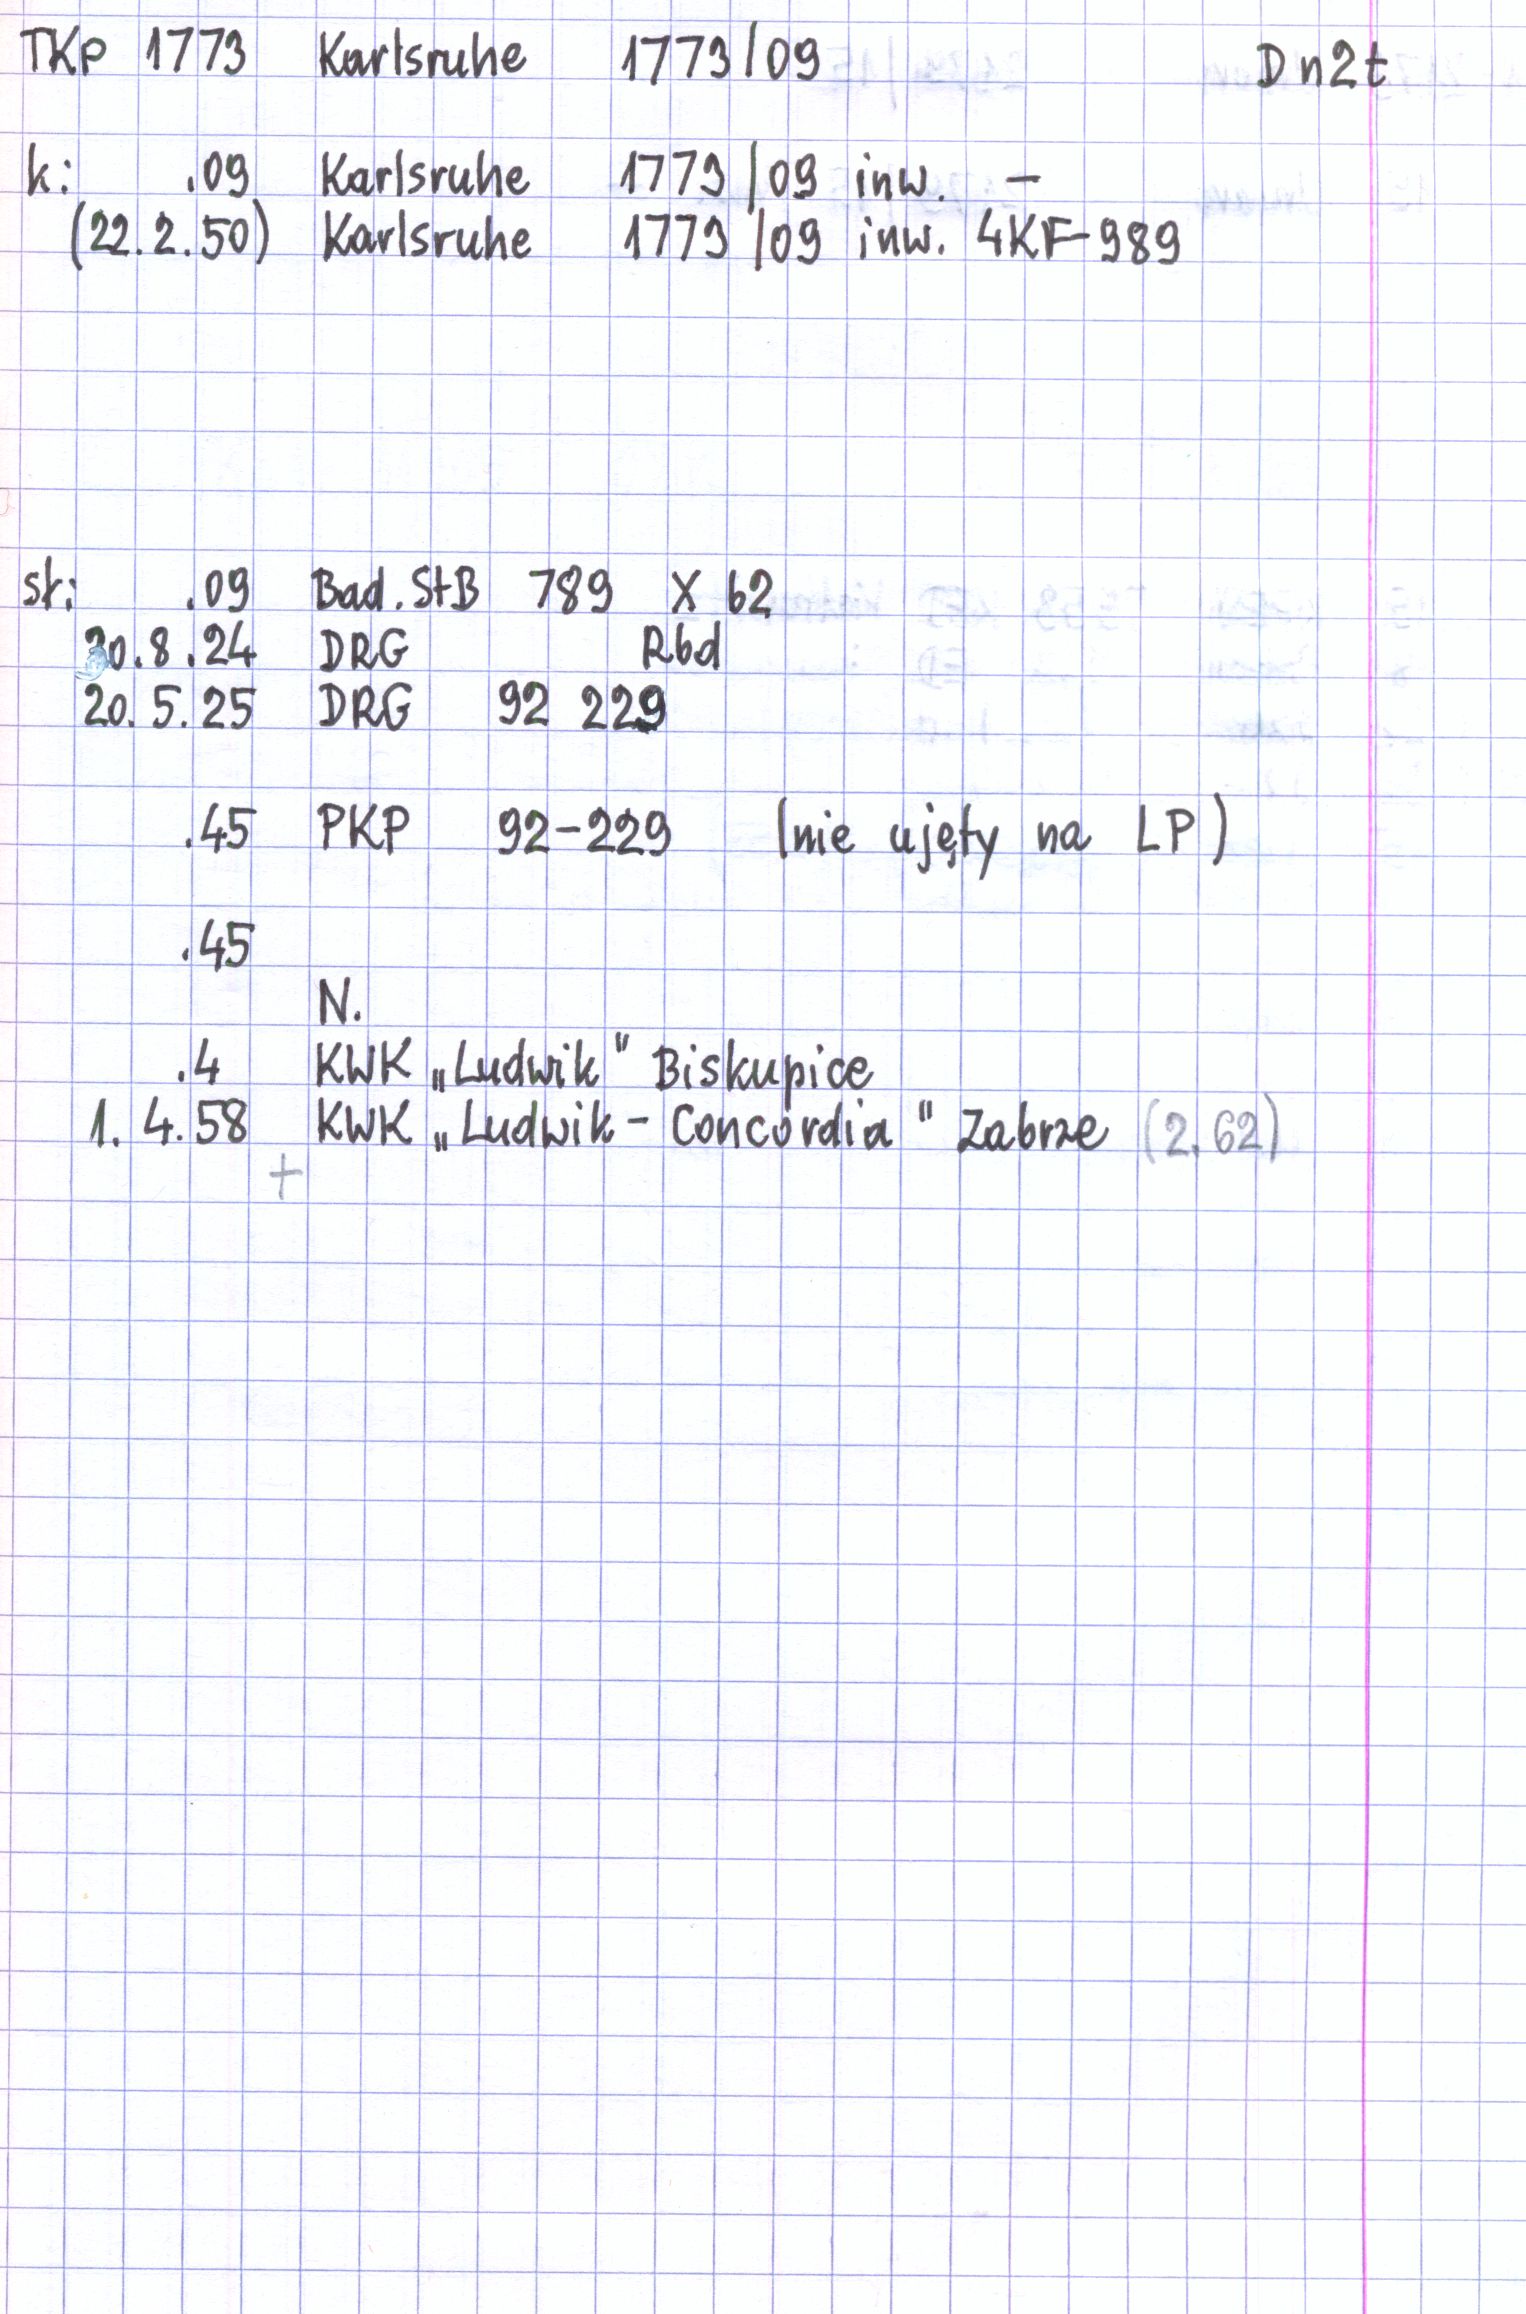 TKp 1773 Karlsruhe 1773/09 Dn2t
k: .09 Karlsruhe 1773/09 inw. -
(22.2.50) Karlsruhe 1773/09 inw. 4KF-989
st: .09 Bad.StB 789 X 62
30.8.24 DRG Rbd
20.5.25 DRG 92 229
.45 PKP 92-229 (nie ujęty na LP)
.45
N.
.4 KWK „Ludwik" Biskupice
1.4.58 KWK „Ludwik - Concordia" Zabrze (2.62)
+